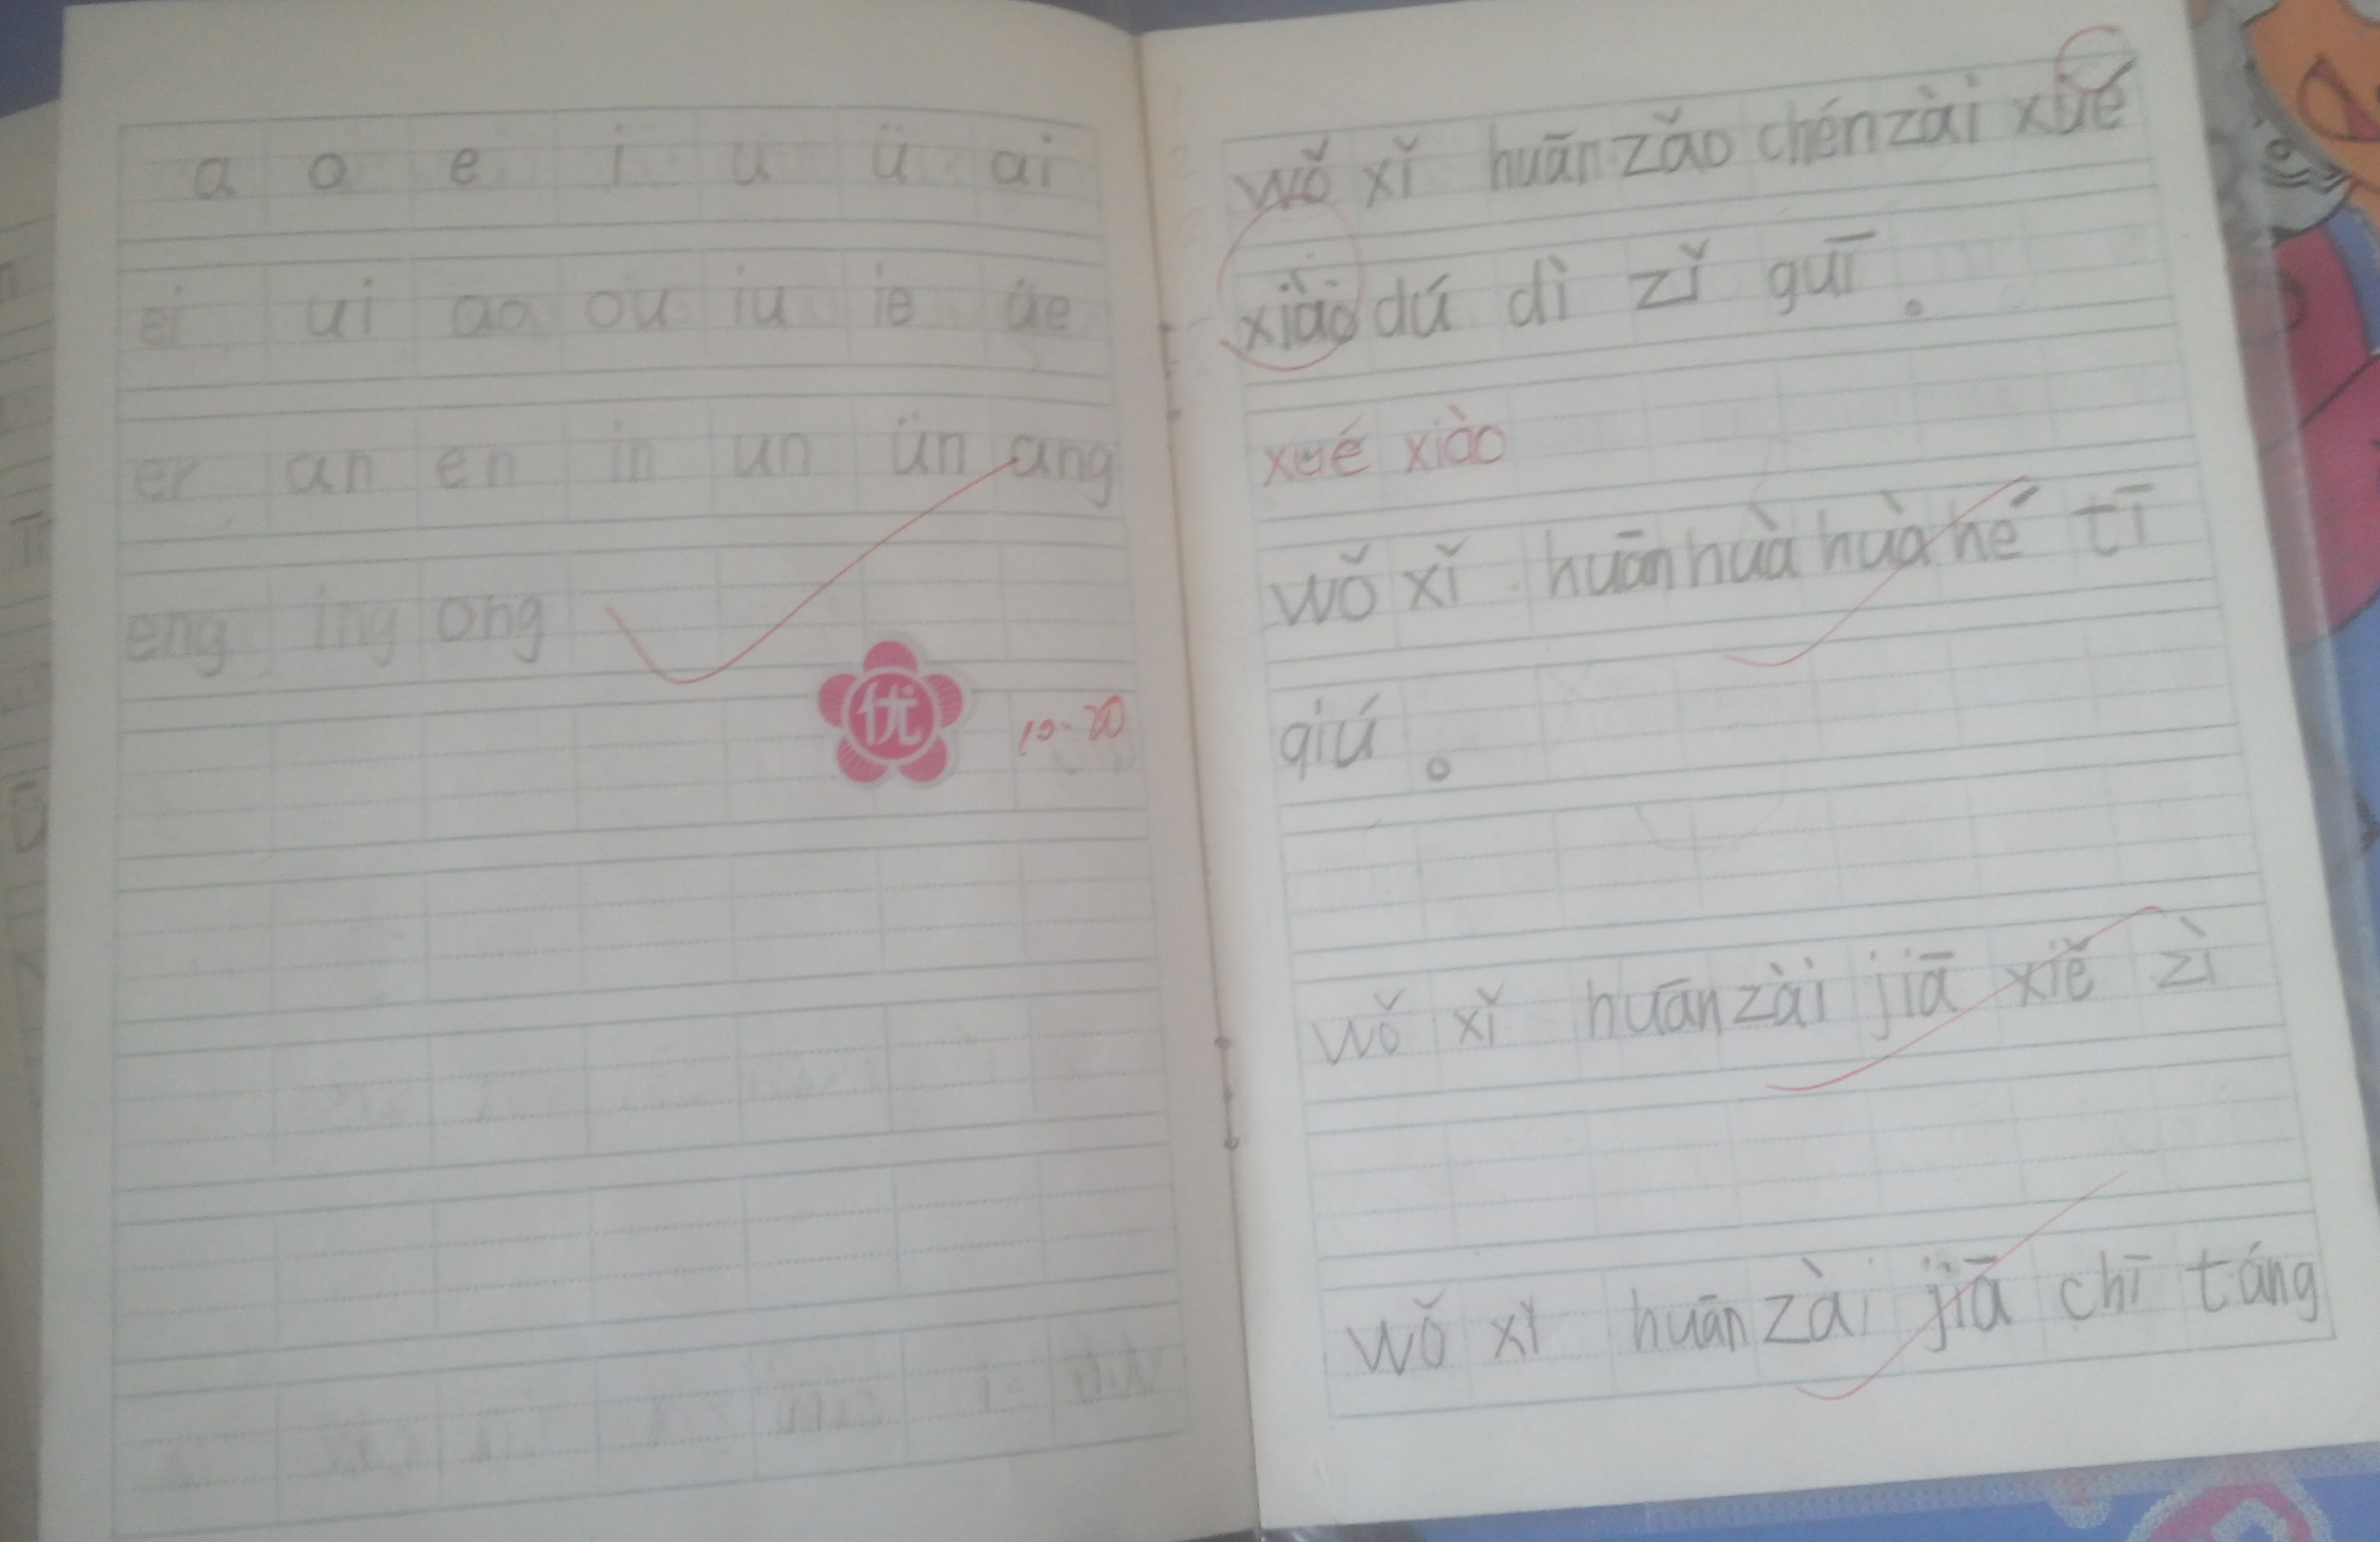 a o e i u ü ai
ei ui ao ou iu ie üe
er an en in un ün ang
eng ing ong
优 10-20
wǒ xǐ huān zǎo chén zài xué
xiào dú dì zǐ guī。
xué xiào
wǒ xǐ huān huà huà hé tī
qiú。
wǒ xǐ huān zài jiā xiě zì
wǒ xǐ huān zài jiā chī táng